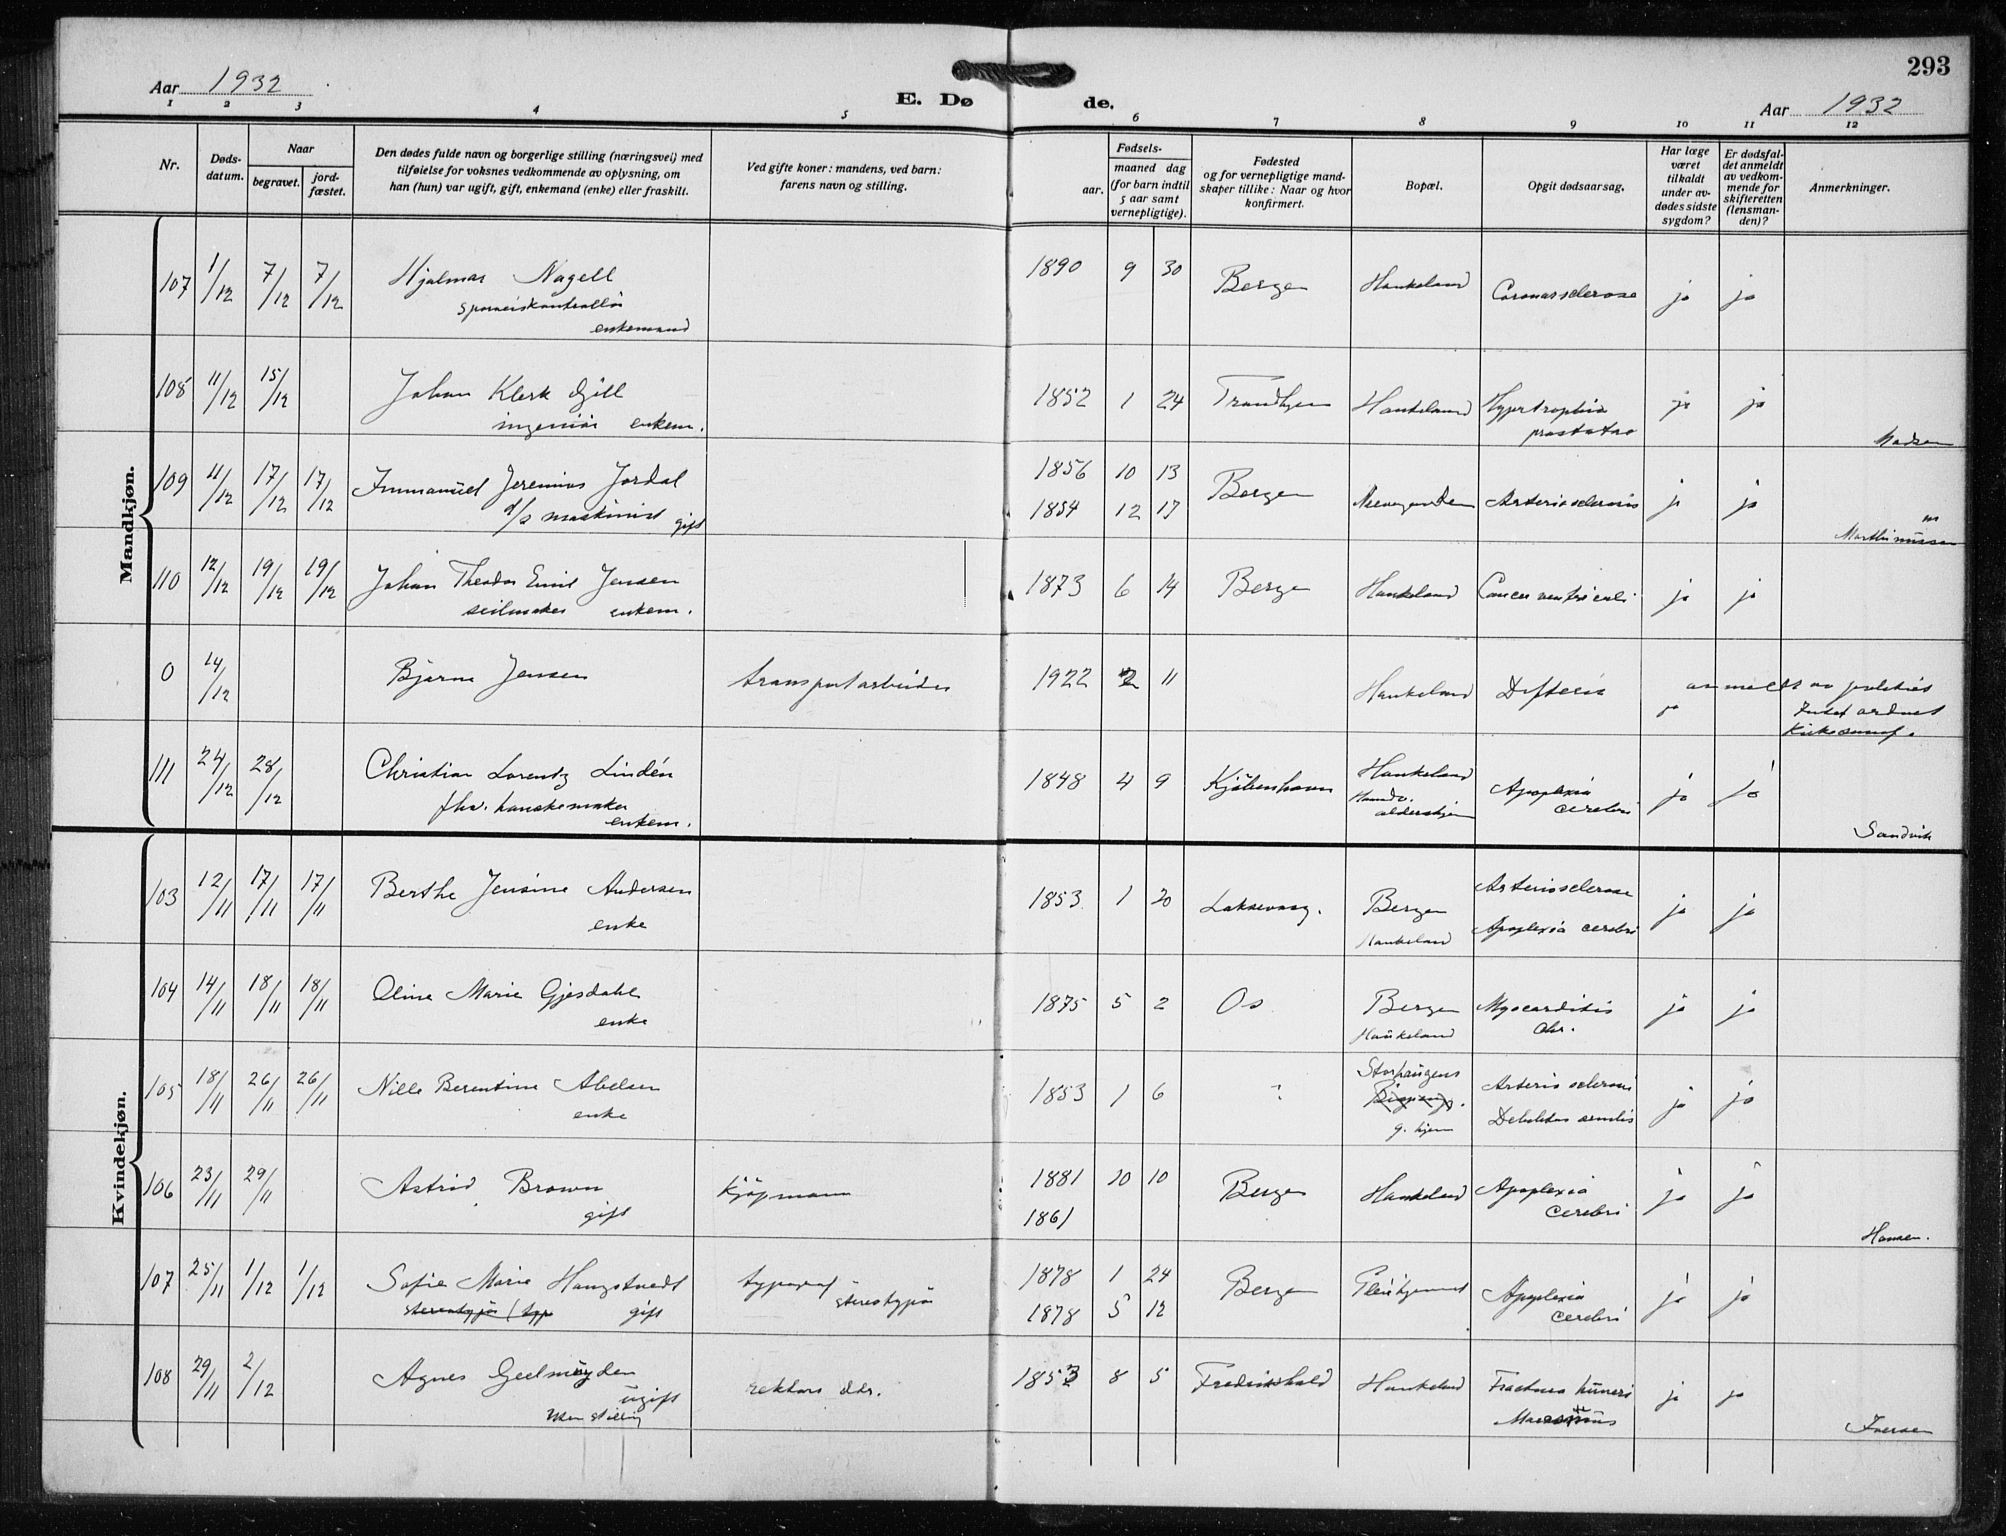 293
Aar 1932
E. Dø
de.
Aar 1932
1 2 3 4 5 6 7 8 9 10 11 12
Nr.
Døds-
datum.
Naar
begravet.
jord-
fæstet.
Den dødes fulde navn og borgerlige stilling (næringsvei) med
tilføielse for voksnes vedkommende av oplysning, om
han (hun) var ugift, gift, enkemand (enke) eller fraskilt.
Ved gifte koner: mandens, ved barn:
farens navn og stilling.
Fødsels-
aar.
maaned dag
(for barn indtil
5 aar samt
vernepligtige).
Fødested
og for vernepligtige mand-
skaper tillike: Naar og hvor
konfirmert.
Bopæl.
Opgit dødsaarsag.
Har læge
været
tilkaldt
under av-
dødes sidste
sygdom?
Er dødsfal-
det anmeldt
av vedkom-
mende for
skifteretten
(lensman-
den)?
Anmerkninger.
Mandkjøn.
107 1/12 7/12 7/12 Hjalmar Nagell 1890 9 30 Bergen Haukeland Coronarsclerose ja ja
sporveiskontrollør
enkemand
108 11/12 15/12 Johan Klerk Gill 1852 1 24 Trondhjem Haukeland Hypertrophia ja ja
ingeniør enkem. prostatae Madsen
109 11/12 17/12 17/12 Immanuel Jeremias Jordal 1856 10 13 Bergen Arteriosclerosis ja ja
d/s maskinist gift 1854 12 17
110 12/12 19/12 19/12 Johan Theodor Emil Jensen 1873 6 14 Bergen Haukeland Cancer ventriculi ja ja
seilmaker enkem.
0 14/12 Bjarne Jensen transportarbeider 1922 2 11 Haukeland Difteri ja anmeldt av politiet
Intet ordnet
111 24/12 28/12 Christian Lorentz Lindén 1848 4 9 Kjøbenhavn Haukeland Apoplexia cerebri ja ja
fhv. hanskemaker
enkem. aldershjem Sandvik
Kvindekjøn.
103 12/11 17/11 17/11 Berthe Jensine Andersen 1853 1 20 Laksevaag. Bergen Arteriosclerose ja ja
enke Haukeland Apoplexia cerebri
104 14/11 18/11 18/11 Oline Marie Gjesdahl 1875 5 2 Os Bergen Myocarditis ja ja
enke Haukeland chr.
105 18/11 26/11 26/11 Nille Berentine Abelsen 1853 1 6 Storhaugens Arteriosclerosis ja ja
enke g. hjem Debilitas senilis
106 23/11 29/11 Astrid Brown kjøpmann 1881 10 10 Bergen Haukeland Apoplexia ja ja
gift 1861 cerebri Hansen.
107 25/11 1/12 1/12 Sofie Marie Haugstvedt typograf 1878 1 24 Bergen Pleiehjemmet Apoplexia ja ja
stereotypør (typ gift stereotypør 1878 5 12 cerebri
108 29/11 2/12 Agnes Geelmuyden rektors dtr. 1853 8 5 Fredrikshald Haukeland Fractura humeri ja ja
ugift
uten stilling Marasmus Iversen